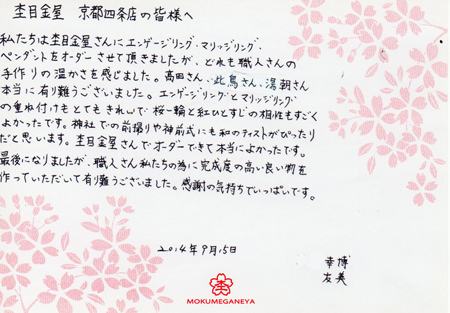 杢目金屋 京都四条店の皆様へ
私たちは杢目金屋さんにエンゲージリング・マリッジリング・
ペンダントをオーダーさせて頂きましたが、どれも職人さんの
手作りの温かさを感じました。高田さん、此島さん、湯朝さん
本当に有難うございました。エンゲージリングとマリッジリング
の重ね付けもとてもきれいで桜一輪と紅ひとすじの相性もすごく
よかったです。神社での前撮りや神前式にも和のテイストがぴったり
だと思います。杢目金屋さんでオーダーできて本当によかったです。
最後になりましたが、職人さん私たちの為に完成度の高い良い物を
作っていただいて有り難うございました。感謝の気持ちでいっぱいです。
2014年9月15日
幸博
友美
MOKUMEGANEYA